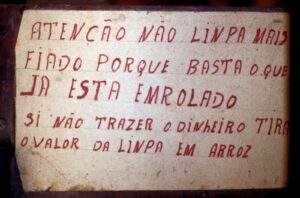 ATENCÃO NÃO LINPA MAIS
FIADO PORQUE BASTA O QUE
JA ESTA EMROLADO
SI NÃO TRAZER O DINHEIRO TIRA
O VALOR DA LINPA EM ARROZ